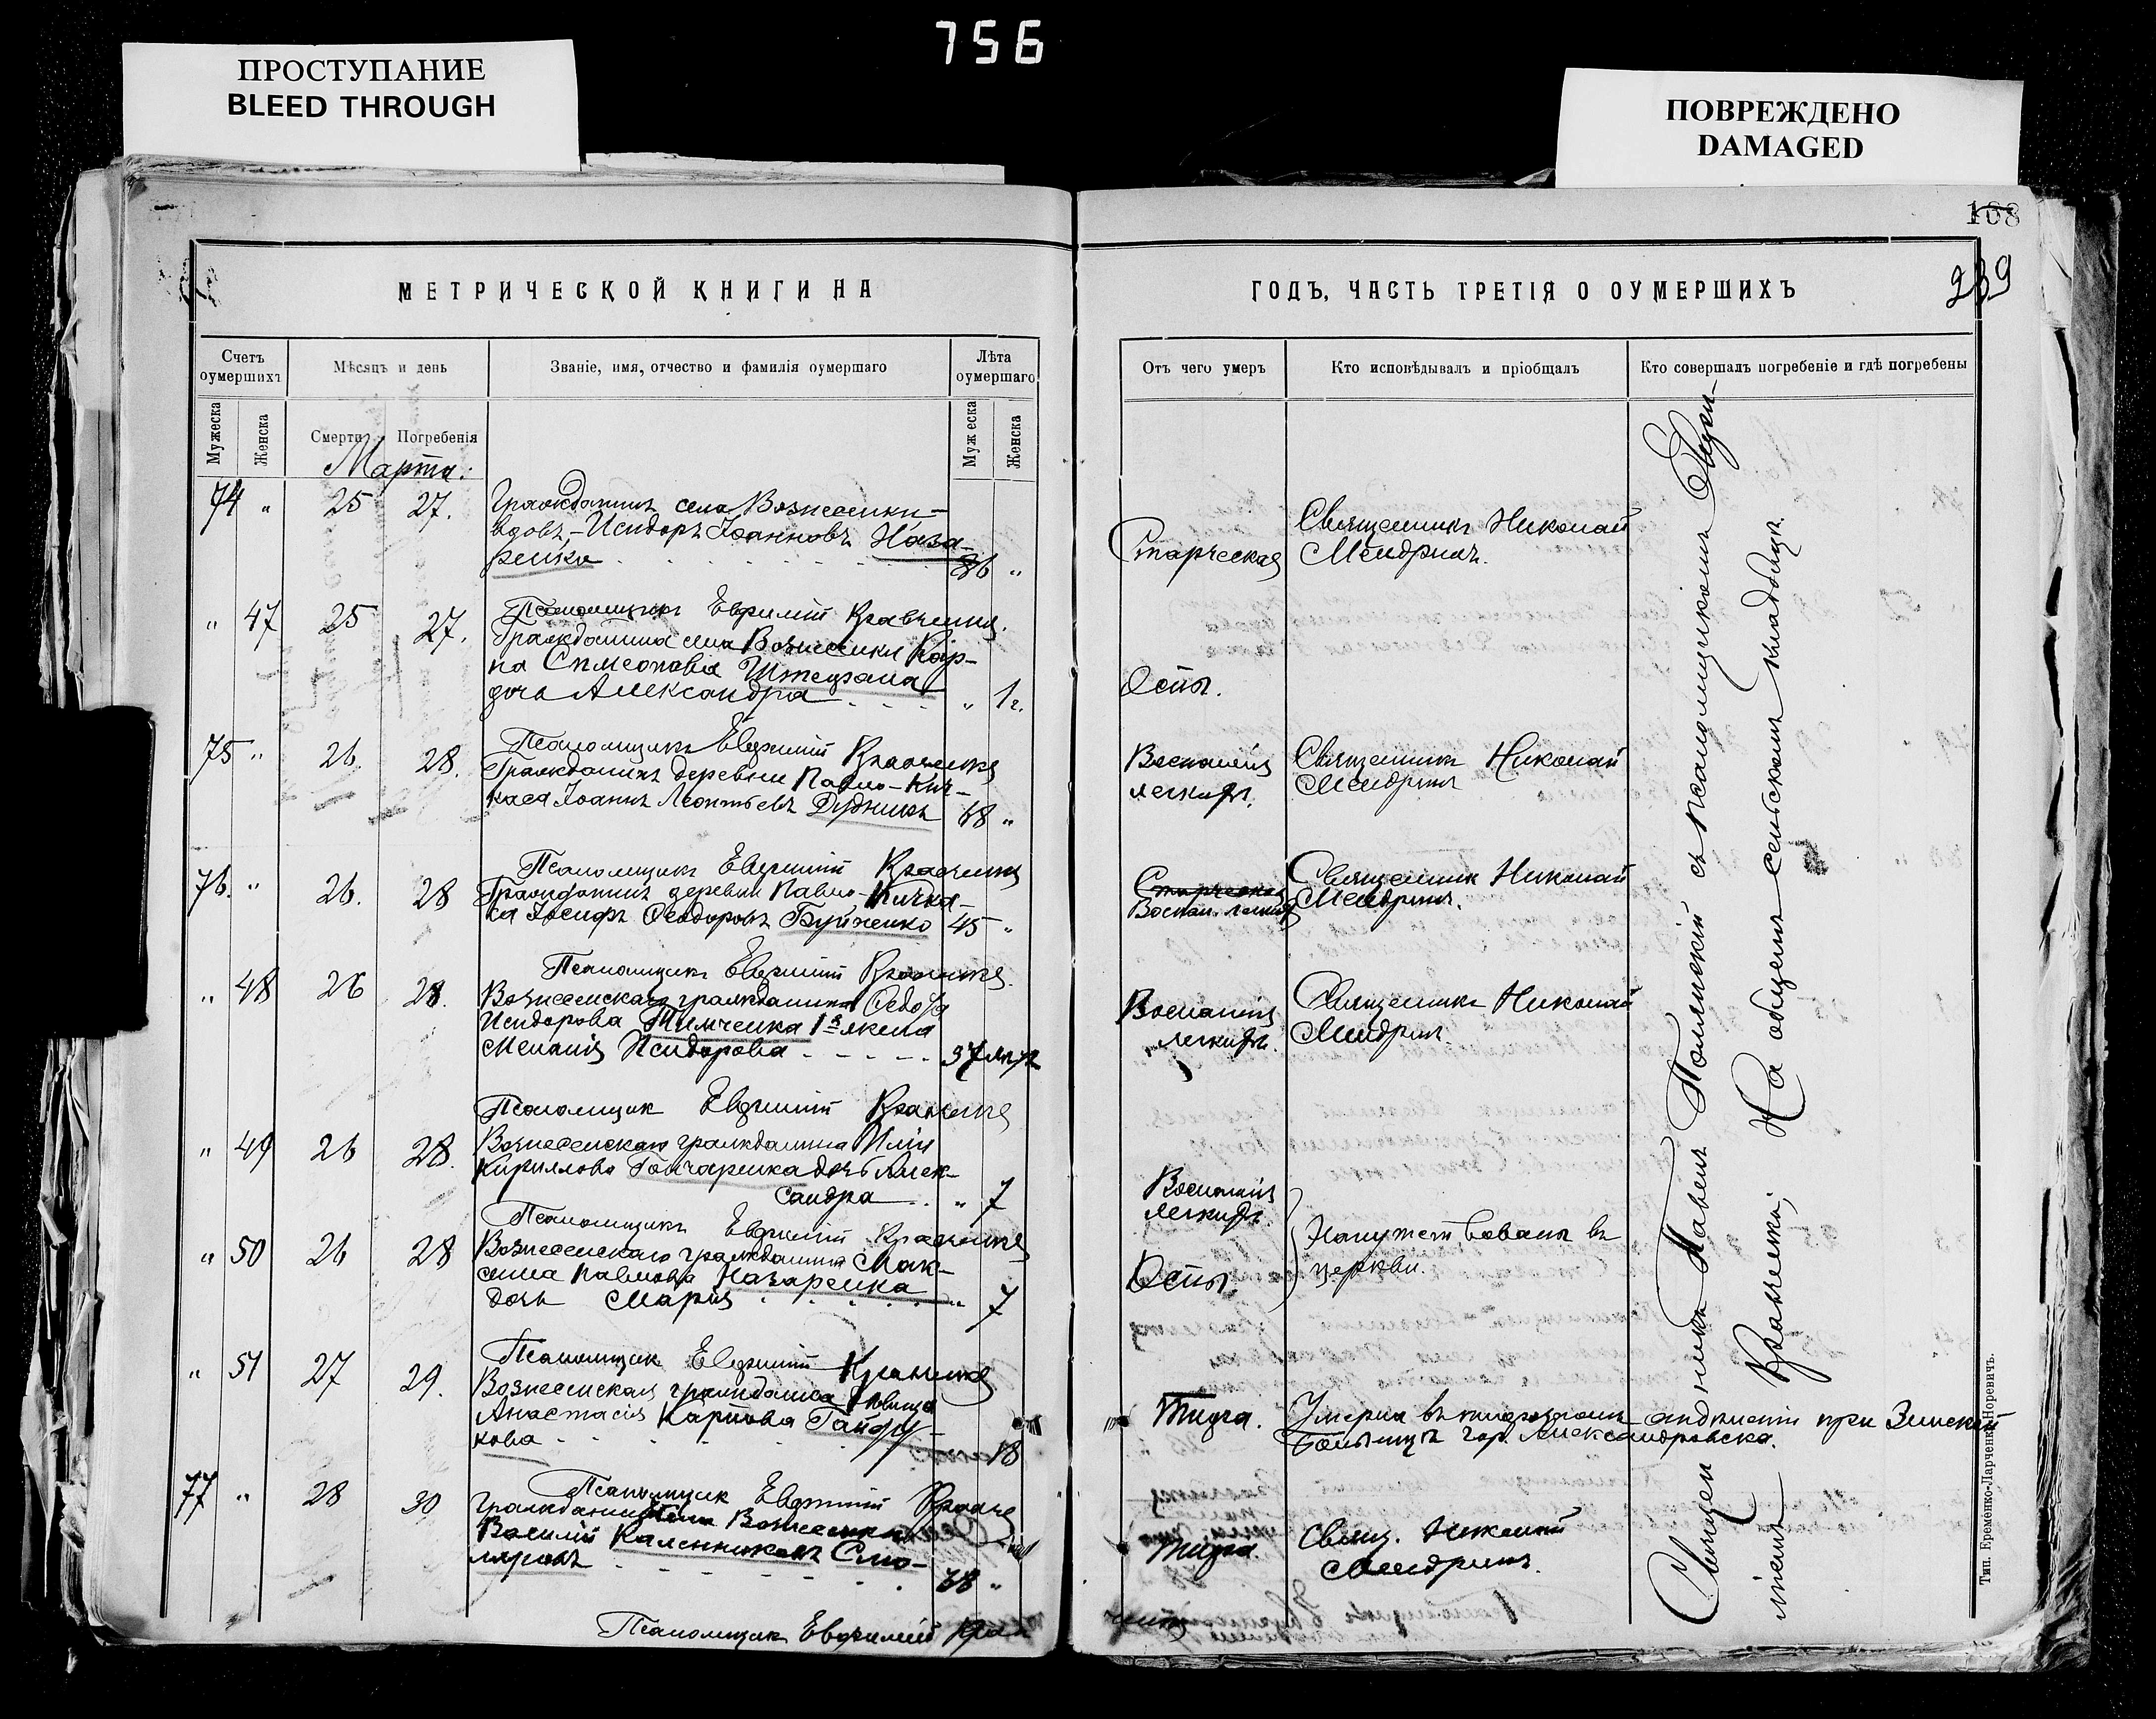 756
ПРОСТУПАНИЕ
BLEED THROUGH
ПОВРЕЖДЕНО
DAMAGED
168
239
МЕТРИЧЕСКОЙ КНИГИ НА
Счетъ оумершихъ
Мѣсяцъ и день
Званіе, имя, отчество и фамилія оумершаго
Лѣта оумершаго
Мужеска
Женска
Смерти
Погребенія
Муж еска
Женска
Марта.
74 " 25 27. Гражданинъ села Вознесенки,
вдовъ, - Исидоръ Іоанновъ Наза-
ренко 86 "
Псаломщикъ Евфимій Кравченко.
" 47 25 27. Гражданина села Вознесенки Кар-
па Симеонова
дочь Александра " 1 г.
Псаломщикъ Евфимій Кравченко
75 " 26. 28. Гражданинъ деревни Павло-Кич-
каса Іоаннъ Леонтьевъ Дудникъ 68 "
Псаломщикъ Евфимій Кравченко
76. " 26. 28 Гражданинъ деревни Павло-Кичка-
са Іосифъ Ѳеодоровъ 45 "
Псаломщикъ Евфимій Кравченко.
" 48 26 28. Вознесенскаго гражданина
Исидорова Тимченка 1я жена
Меланія Исидорова 37
Псаломщикъ Евфимій Кравченко
" 49 26 28. Вознесенскаго гражданина Иліи
Кириллова Гончаренка дочь Алек-
сандра " 7
Псаломщикъ Евфимій Кравченко
" 50 26 28 Вознесенскаго гражданина Мак-
сима Павлова Назаренка
дочь Марія " 7
Псаломщикъ Евфимій Кравченко
" 51 27 29. Вознесенская гражданка девица
Анастасія Карпова
кова 18
Псаломщик Евфимій Кравче
77 " 28 30 Гражданинъ села Вознесенки
Василій Калинниковъ Смо-
ляровъ 68 "
Псаломщик Евфимій Крав
ГОДЪ, ЧАСТЬ ТРЕТІЯ О ОУМЕРШИХЪ
Отъ чего умеръ
Кто исповѣдывалъ и пріобщалъ
Кто совершалъ погребеніе и гдѣ погребены
Старческая
Священникъ Николай
Мендринъ.
Оспы.
Воспаленія
легкихъ.
Священникъ Николай
Мендринъ
Старческая
Воспал. легкихъ
Священник Николай
Мендринъ.
Воспаленія
легкихъ.
Священникъ Николай
Мендринъ.
Воспаленія
легкихъ.
Оспы.
Напутствована въ
церкви.
Тифа.
Умерла въ тифозномъ отдѣленіи при Земской
больницѣ гор. Александровска.
Тифа.
Свящ. Николай
Мендринъ.
ченко
Священникъ Павелъ Полянскій съ псаломщикомъ Евфи-
міемъ Кравченко; На общемъ сельскомъ кладбищѣ.
Тип. Еременко-Ларченко, Норевичъ.